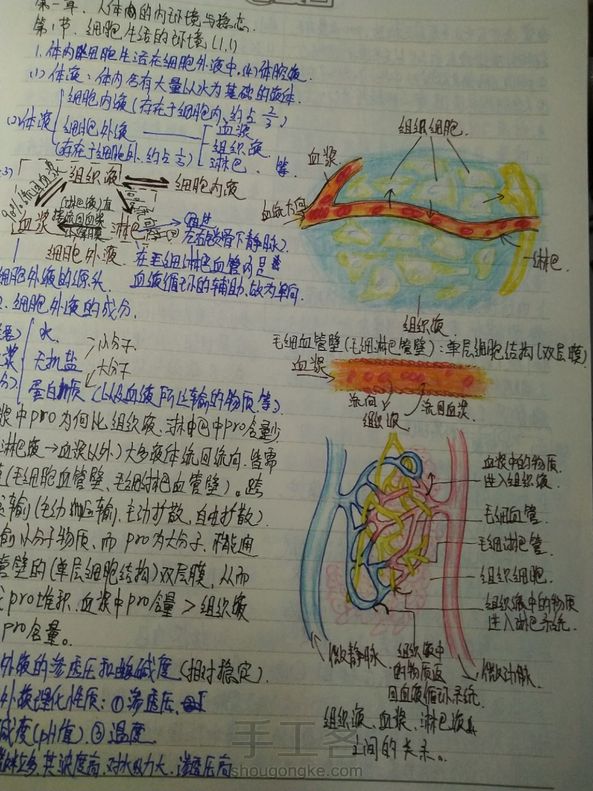 第一章、人体的内环境与稳态.
第1节、细胞生活的环境(1.1)
1.体内细胞生活在细胞外液中,
(1)体液:体内含有大量以水为基础的液体.
细胞内液(存在于细胞内、约占2/3)
(2)体液
细胞外液
(存在于细胞外、约占1/3)
血浆
组织液
淋巴、等
组织液
细胞内液
血浆
淋巴
左右锁骨下静脉
细胞外液
在毛细淋巴血管内是
细胞外液的源头、血液循环的辅助,故为单向.
2.细胞外液的成分.
水、
小分子.
无机盐
大分子
蛋白质(以及血液所运输的物质等)
浆中pro为何比组织液、淋巴中pro含量少
淋巴液→血浆以外)大多液体流回流向,皆需
(毛细血管壁、毛细淋巴血管等)。跨
运输(主动运输、主动扩散、自由扩散)
输小分子物质,而pro为大分子,
管壁的(单层细胞结构)双层膜,从而
pro堆积,血浆中pro含量>组织液
pro含量。
外液的渗透压和酸碱度(相对稳定).
外液理化性质:①渗透压、
碱度(pH值).③温度
其浓度高,对水吸力大,渗透压高
组织细胞.
血浆
血液方向
淋巴.
组织液
毛细血管壁(毛细淋巴管壁):单层细胞结构(双层膜)
血浆
流向
组织液
流回血浆
血浆中的物质
进入组织液.
毛细血管
毛细淋巴管.
组织细胞.
组织液中的物质
进入淋巴系统.
微静脉.
组织液中
的物质返
回血液循环系统.
微动脉.
组织液、血浆、淋巴液
之间的关系。
手工客
shougongke.com